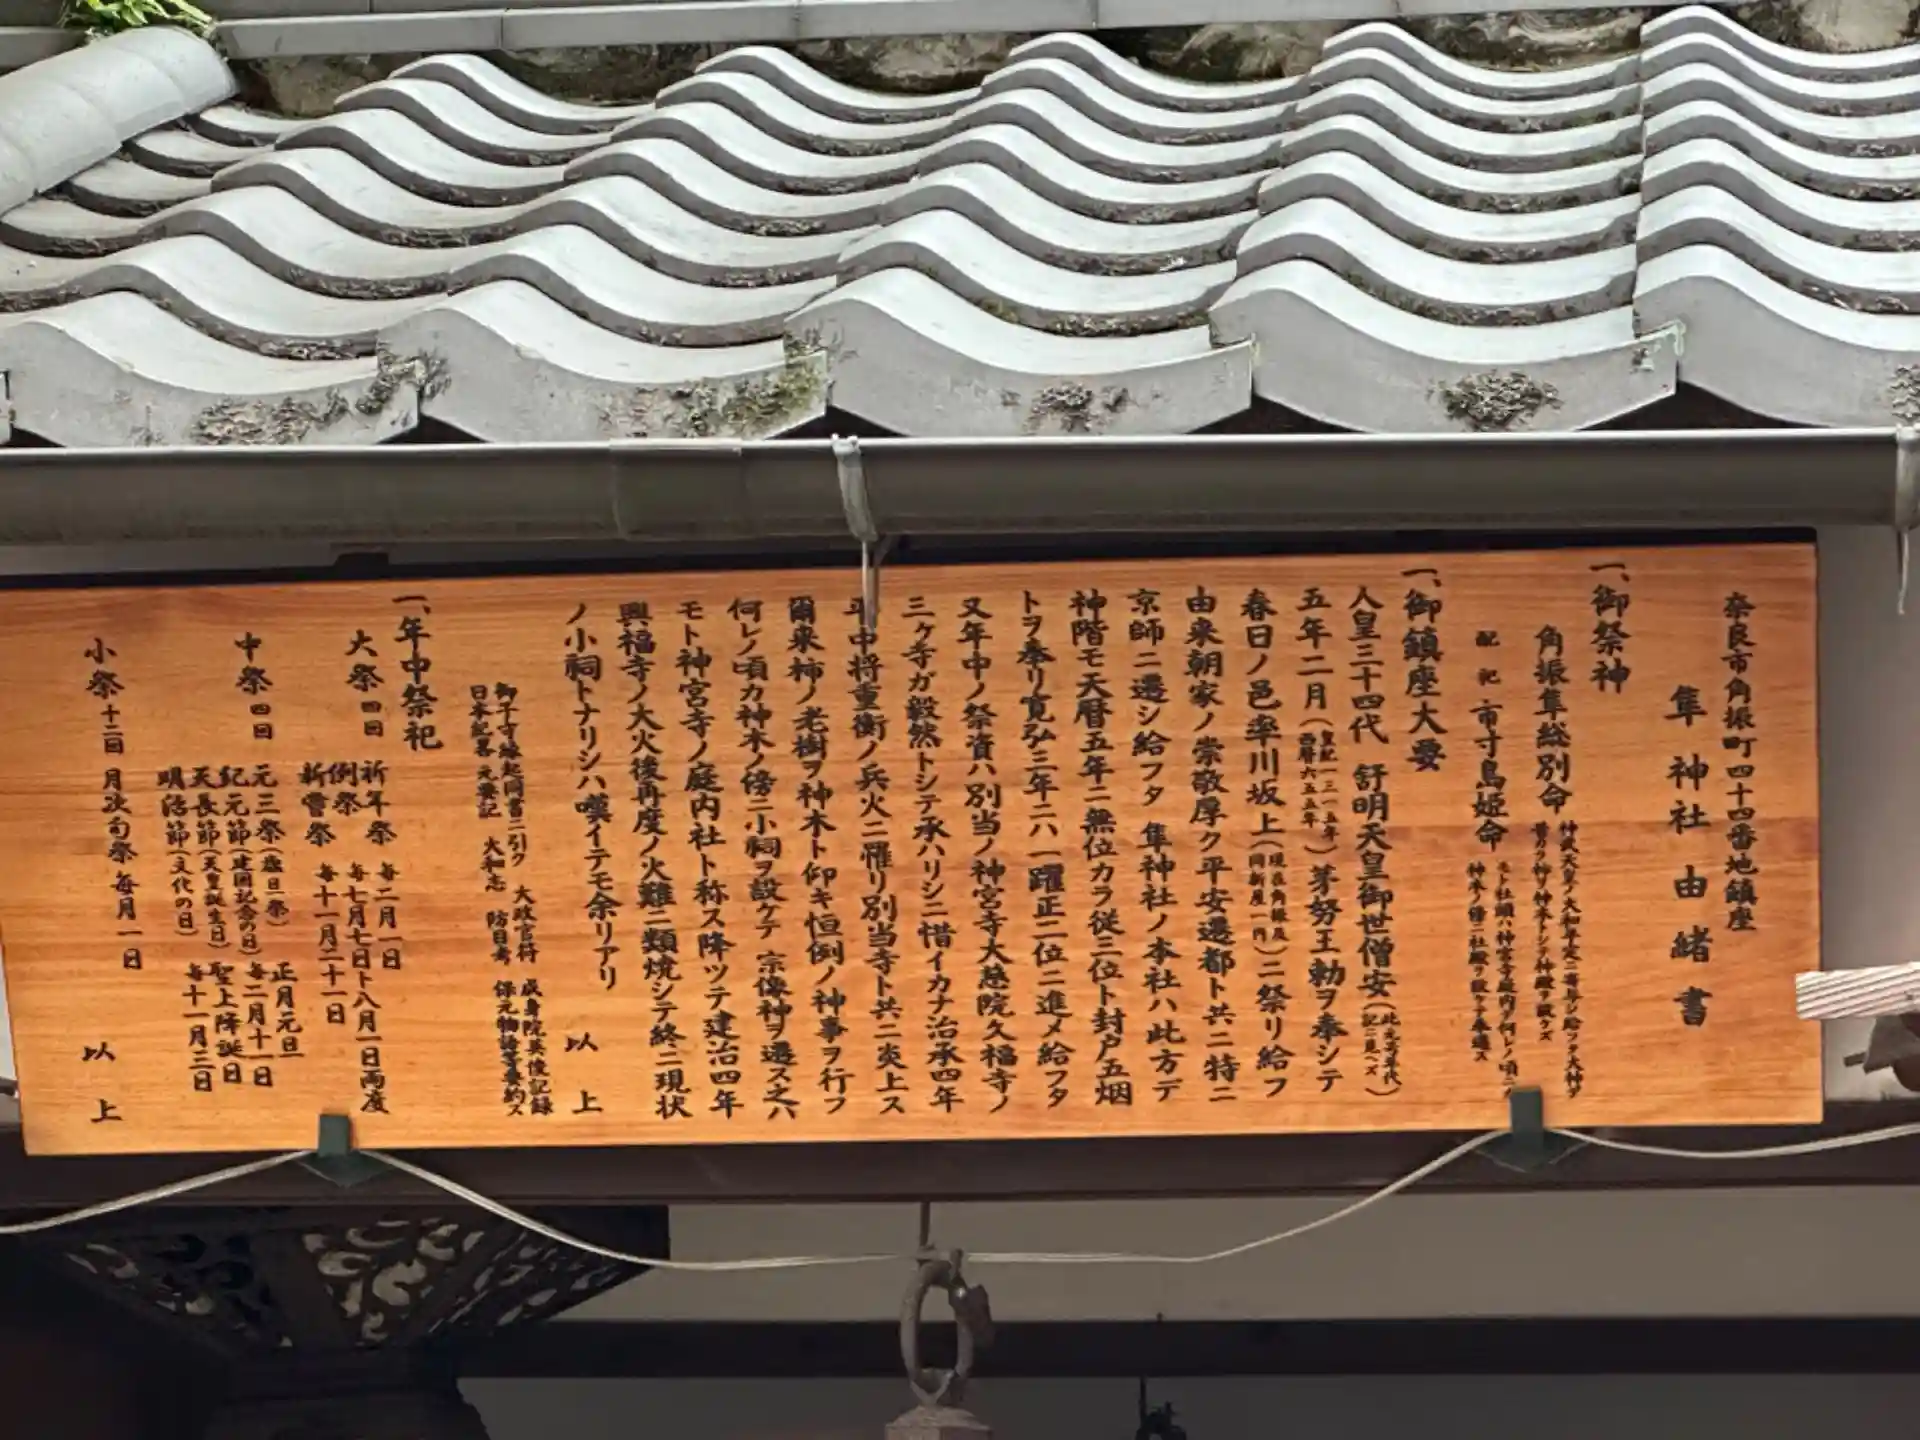 奈良市角振町四十四番地鎮座
隼神社由緒書
一、御祭神
角振隼総別命
神武天皇
配祀 市寸島姫命
神木ノ傍ニ社殿ヲ設ケテ奉遷ス
一、御鎮座大要
人皇三十四代 舒明天皇御世僧安
五年二月(皇紀一三一五年 西暦六五五年)茅努王勅ヲ奉シテ
春日ノ邑率川坂上(現在角振及 同新屋一円)ニ祭リ給フ
由来朝家ノ崇敬厚ク平安遷都ト共ニ特ニ
京師ニ遷シ給フタ 隼神社ノ本社ハ此方デ
神階モ天暦五年ニ無位カラ従三位ト封戸五烟
トヲ奉リ寛弘三年ニハ一躍正二位ニ進メ給フタ
又年中ノ祭資ハ別当ノ神宮寺大慈院久福寺ノ
三ヶ寺ガ毅然トシテ承ハリシニ惜イカナ治承四年
平中将重衡ノ兵火ニ罹リ別当寺ト共ニ炎上ス
爾来柿ノ老樹ヲ神木ト仰キ恒例ノ神事ヲ行フ
何レノ頃カ神木ノ傍ニ小祠ヲ設ケテ 宗像神ヲ遷ス之ハ
モト神宮寺ノ庭内社ト称ス降ツテ建治四年
興福寺ノ大火後再度ノ火難ニ類焼シテ終ニ現状
ノ小祠トナリシハ嘆イテモ余リアリ 以上
御子守縁起同書ニ引ク 大政官符 成身院英俊記録
日本記畧 元要記 大和志 防目考 保元物語等要約ス
一、年中祭祀
大祭 四回 祈年祭 毎二月一日
例祭 毎七月七日ト八月一日両度
新嘗祭 毎十一月二十一日
中祭 四回 元三祭(塩日祭) 正月元旦
紀元節(建国記念の日) 毎二月十一日
天長節(天皇誕生日) 聖上降誕日
明治節(文化の日) 毎十一月三日
小祭 十二回 月次旬祭 毎月一日 以上